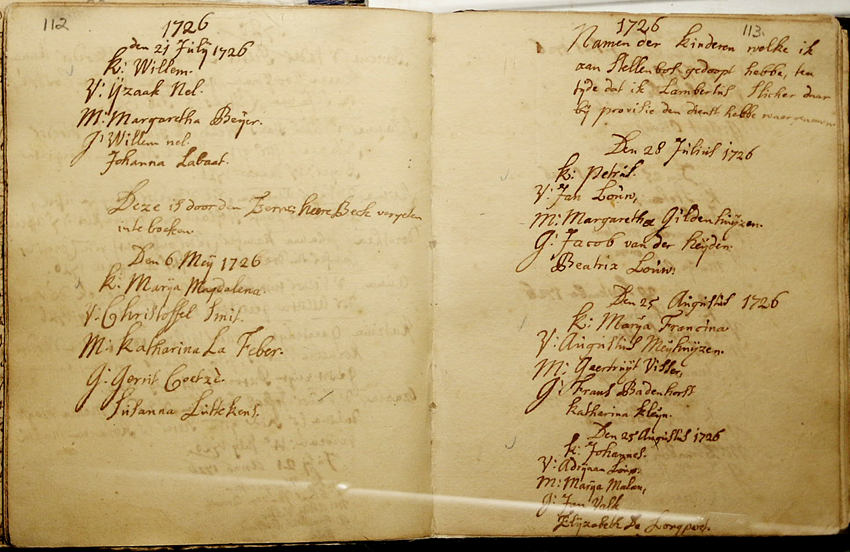 112
1726
den 21 July 1726
K: Willem.
V: Yzaak Nel.
M: Margaretha Beyer.
G: Willem nel.
Johanna Labaat.
Deze is door den Eerw. heere Beck vergeten
in te boeken.
Den 6 Mey 1726
K: Marya Magdalena.
V: Christoffel Smit.
M: Katharina La Feber.
G: Gerrit Coetzè.
Susanna Luttekens.
113.
1726
Namen der kinderen welke ik
aan Stellenbos gedoopt hebbe, ten
tyde dat ik Lambertus Slicher daar
by provisie den dienst hebbe waergenomen
Den 28 Julius 1726
K: Petrus.
V: Jan Louw,
M: Margaretha Gildenhuyzen.
G: Jacob van der Heyden.
Beatrix Louw.
Den 25 Augustus 1726
K: Marya Francina
V: Augustus Meyhuyzen.
M: Geertruyt Visser,
G: Frans Badenhorst
Katharina Kleyn.
Den 25 Augustus 1726
K: Johannes.
V: Adryaan Louw.
M: Marya Malan,
G: Jan Valk
Elyzabeth De